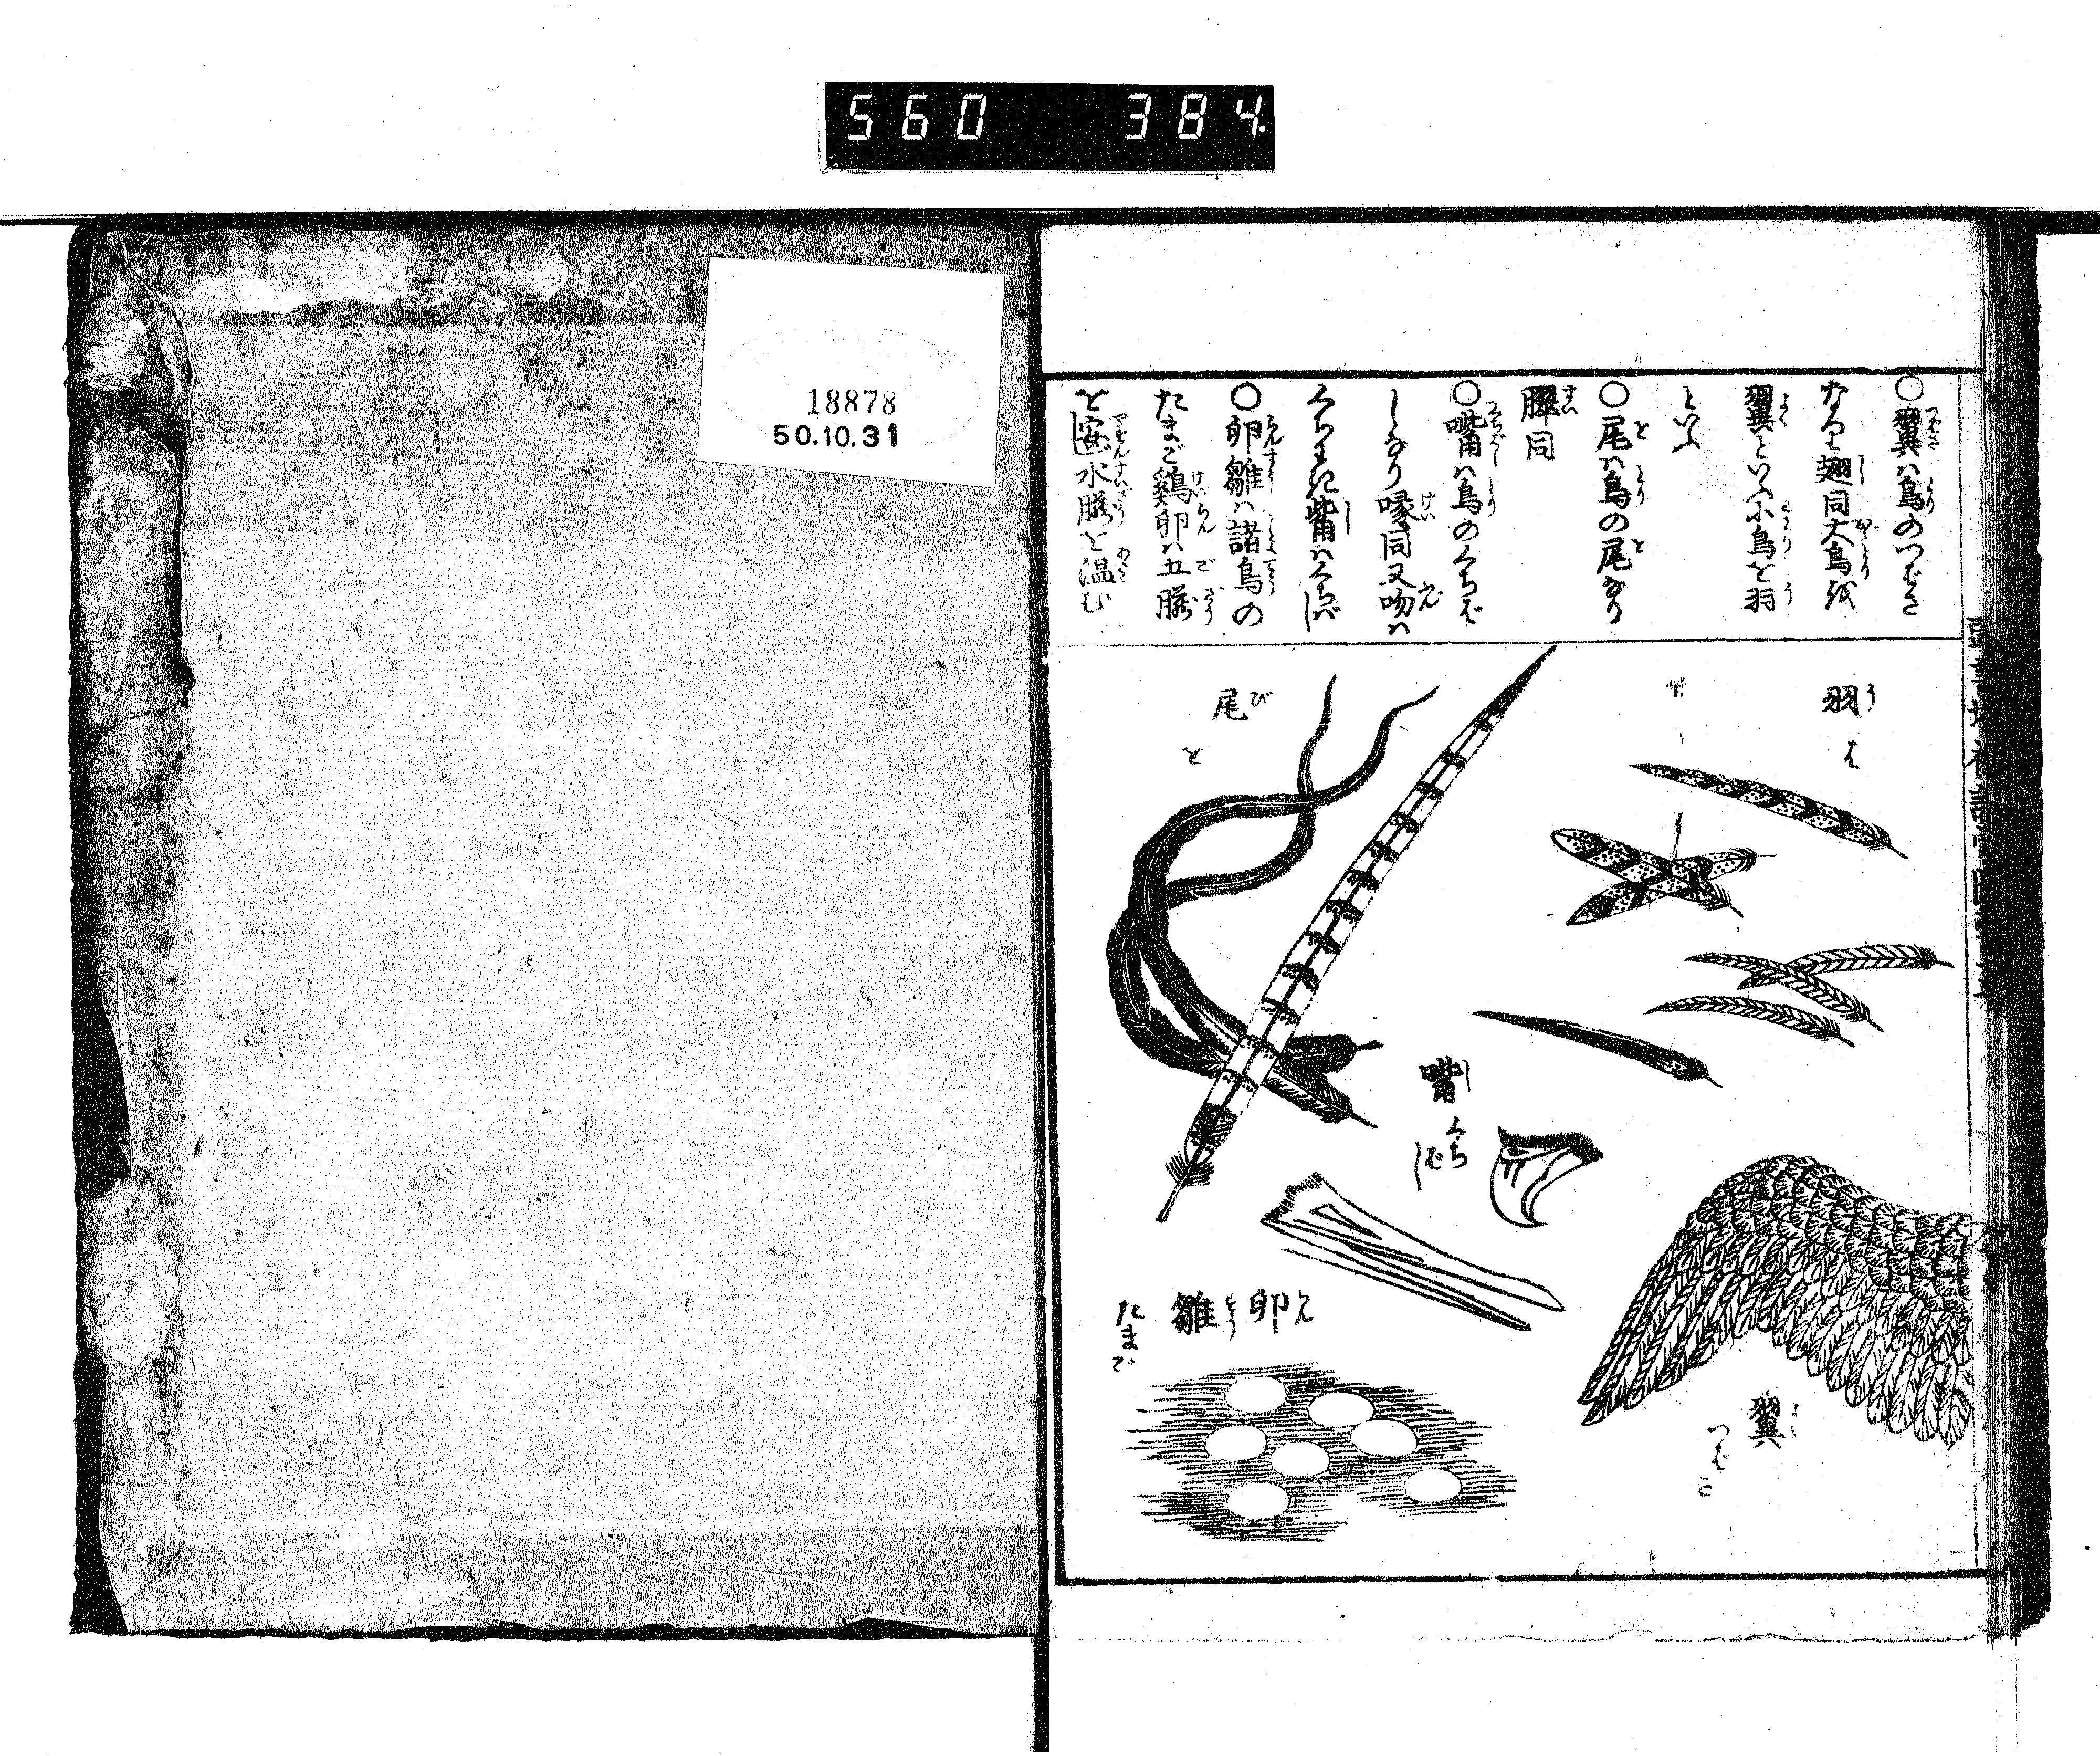 560 384.
18878
50.10.31
〇翼は鳥のつばさ
なり翅同大鳥を
翼といふ小鳥を羽
といふ
〇尾は鳥の尾なり
臎同
〇嘴は鳥のくちば
しなり喙同又吻は
くちわき觜はくちばし
〇卵雛は諸鳥の
たまご鶏卵は五臓
を安水臓を温む
羽 う
は
尾 び
を
嘴 し
くち
ばし
翼 よく
つばさ
卵 らん 雛 すう
たまご